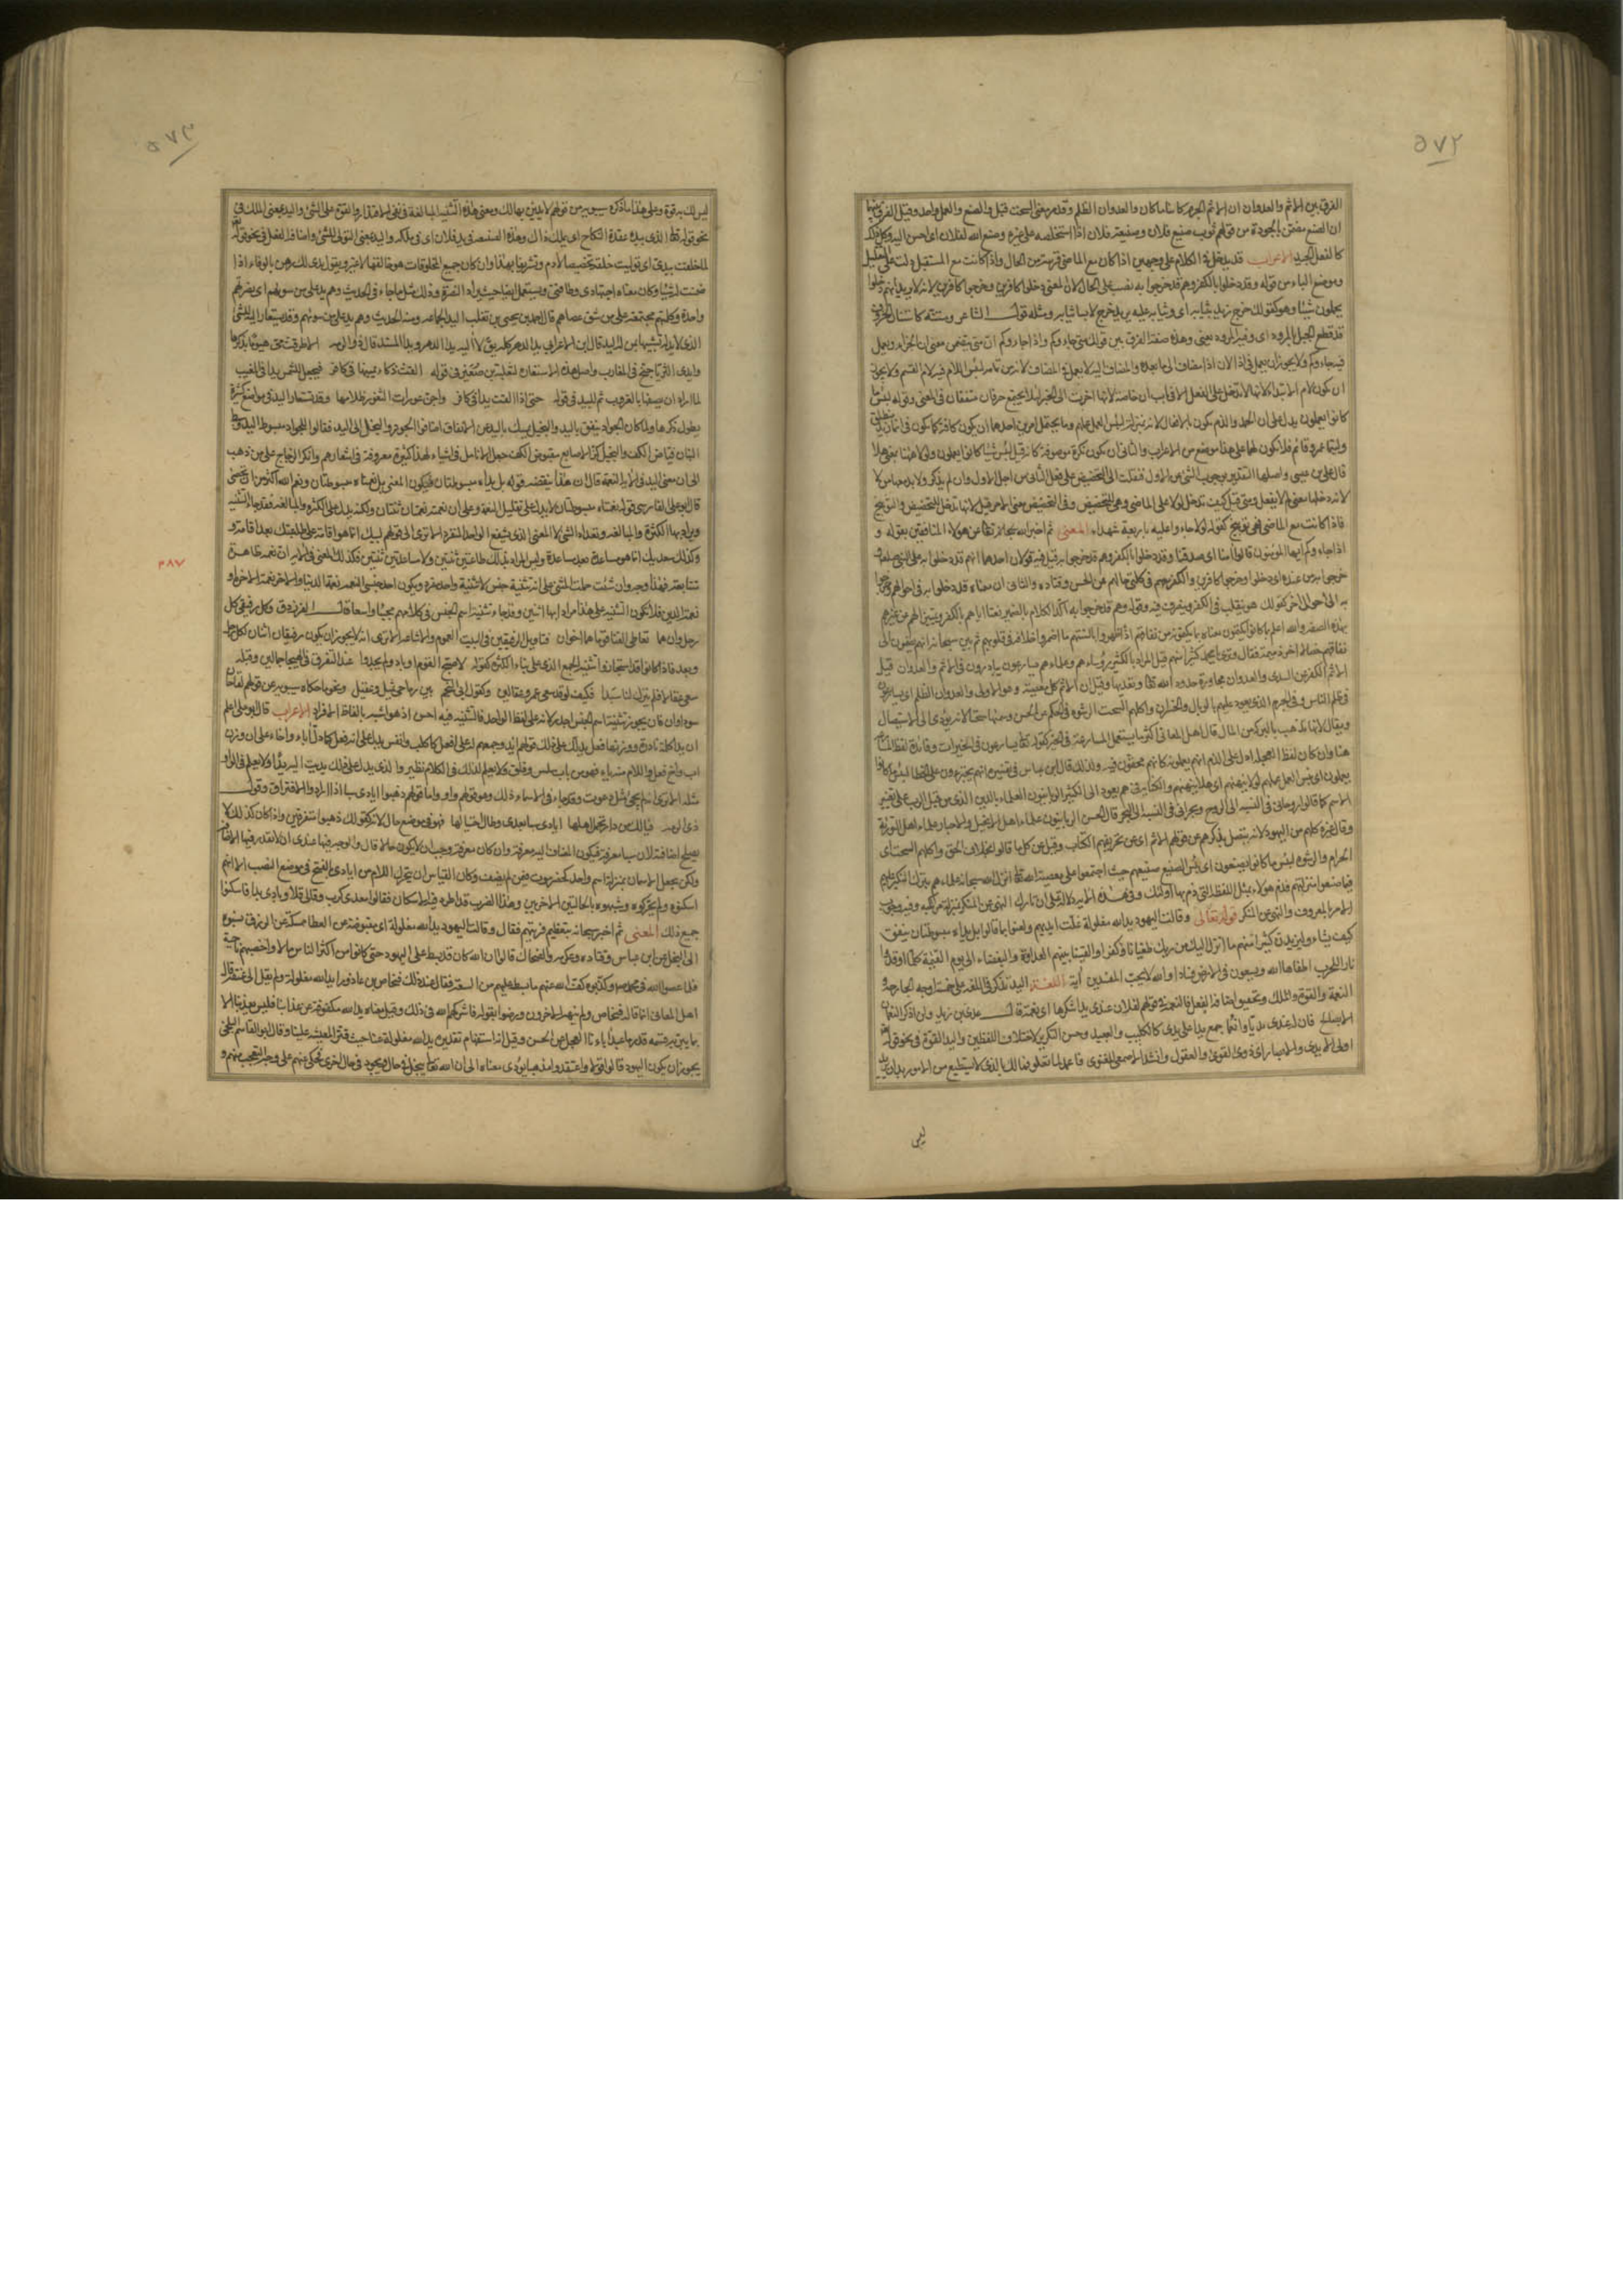 ٥٧٢
الفرق بين الاثم والعدوان ان الاثم الجرم كائنا ما كان والعدوان الظلم وقد مر معنى السحت قبل والصنع والعمل واحد وقيل الفرق بينهما
ان الصنع مضمن بالجودة من قولهم ثوب صنيع وفلان صنيعة فلان اذا استخلصه على غيره وصنع الله لفلان اى احسن اليه وكل ذلك
كالفعل الجيد الاعراب قد يدخل فى الكلام على وجهين اذا كان مع الماضى قربته من الحال واذا كانت مع المستقبل دلت على التقليل
وموضع الباء من قوله وقد دخلوا بالكفر وهم قد خرجوا به نصب على الحال لان المعنى دخلوا كافرين وخرجوا كافرين لانه لا يريد انهم دخلوا
يحملون شيئا وهو كقولك خرج زيد بثيابه اى وثيابه عليه يريد خرج لابسا ثيابه ومثله قول الشاعر ومستنة كاستنان الخروف
قد قطع الحبل بالمرود اى وفيه المرود يعنى وهذه صفته الفرق بين قولك متى جاؤكم واذا جاؤكم ان متى يتضمن معنى ان الجزاء ويعمل
فيه جاؤكم ولا يجوز ان يعمل فى اذا لان اذا مضاف الى ما بعده والمضاف اليه لا يعمل فى المضاف لانه من تمامه لبئس اللام فيه لام القسم ولا يجوز
ان يكون لام الابتداء لانها لا تدخل على الفعل الا فى باب ان خاصة لانها اخرت الى الخبر لئلا يجتمع حرفان متفقان فى المعنى وقوله لبئس ما
كانوا يعملون يدل على ان الحمد والذم يكون بالافعال لانه بمنزلة لبئس العمل عملهم وما يحتمل امرين احدهما ان يكون كافة كما تكون فى انما زيد منطلق
وليتما عمرو قائم فلا يكون لها على هذا موضع من الاعراب والثانى ان يكون نكرة موصوفة كانه قيل لبئس شيئا كانوا يعملون ولولا هاهنا بمعنى هلا
قال على بن عيسى واصلها التقدير بوجوب الشئ عن الاول فنقلت الى التحضيض على فعل الثانى من اجل الاول وان لم يذكر ولا بد معها من لا
لانه دخلها معنى لم لا يفعل ومتى قيل كيف تدخل لولا على الماضى وهى للتحضيض وفى التحضيض معنى الامر قيل لانها تدخل للتحضيض والتوبيخ
فاذا كانت مع الماضى فهى توبيخ كقوله لولا جاءوا عليه باربعة شهداء المعنى ثم اخبر الله سبحانه تعالى عن هؤلاء المنافقين بقوله و
اذا جاءوكم ايها المؤمنون قالوا آمنا اى صدقنا وقد دخلوا بالكفر وهم قد خرجوا به قيل فيه قولان احدهما انهم قد دخلوا به على النبى صلعم و
خرجوا به من عنده اى دخلوا وخرجوا كافرين والكفر معهم فى كلتى حالتهم عن الحسن وقتادة والثانى ان معناه قد دخلوا به فى احوالهم وخرجوا
به الى احوال اخر كقولك هو يتقلب فى الكفر ويتصرف فيه وقوله وهم قد خرجوا به اكد الكلام بالضمير تعيينا اياهم بالكفر وتمييزا لهم من غيرهم
بهذه الصفة والله اعلم بما كانوا يكتمون معناه بما يكتمونه من نفاقهم اذ اظهروا بالسنتهم ما اضمروا خلافه فى قلوبهم ثم بين سبحانه انهم يضمون الى
نفاقهم خصالا اخر ذميمة فقال وترى يا محمد كثيرا منهم قيل المراد بالكثير رؤساءهم وعلماءهم يسارعون يبادرون فى الاثم والعدوان قيل
الاثم الكفر عن السدى والعدوان مجاوزة حدود الله تعالى وتعديها وقيل ان الاثم كل معصية وهو الاولى والعدوان الظلم اى يسارعون
فى ظلم الناس وفى الجرم الذى يعود عليهم بالوبال والخسران واكلهم السحت الرشوة فى الحكم عن الحسن وسميتها سحتا لانه يؤدى الى الاستيصال
ويقال لانها تذهب بالبركة من المال قال اهل المعانى اكثر ما يستعمل المسارعة فى الخير كقوله تعالى يسارعون فى الخيرات وفائدة لفظ المسارعة
هنا وان كان لفظ العجلة ادل على الذم انهم يعملونه كانهم محقون فيه ولذلك قال ابن عباس فى تفسيره انهم يجترءون على الخطا لبئس ما كانوا
يعملون اى بئس العمل عملهم لولا ينهاهم اى هلا ينهاهم والكناية فى هم يعود الى الكثير الربانيون العلماء بالدين الذى من قبل الرب على تغيير
الاسم كما قالوا روحانى فى النسبة الى الروح وبحرانى فى النسبة الى البحر قال الحسن الربانيون علماء اهل الانجيل والاحبار علماء اهل التورية
وقال غيره كلهم من اليهود لانه يتصل بذكرهم عن قولهم الاثم اى عن تحريفهم الكتاب وقيل عن كل ما قالوا بخلاف الحق واكلهم السحت اى
الحرام والرشوة لبئس ما كانوا يصنعون اى بئس الصنيع صنيعهم حيث اجتمعوا على معصية الله تعالى انزل الله سبحانه علماءهم بترك النكير عليهم
فيما صنعوا منزلتهم فذم هؤلاء بمثل اللفظة التى ذم بها اولئك وفى هذه الاية دلالة على ان تارك النهى عن المنكر بمنزلة مرتكبه وفيه وجوب
الامر بالمعروف والنهى عن المنكر قوله تعالى وقالت اليهود يد الله مغلولة غلت ايديهم ولعنوا بما قالوا بل يداه مبسوطتان ينفق
كيف يشاء وليزيدن كثيرا منهم ما انزل اليك من ربك طغيانا وكفرا والقينا بينهم العداوة والبغضاء الى يوم القيمة كلما اوقدوا
نارا للحرب اطفاها الله ويسعون فى الارض فسادا والله لا يحب المفسدين آية اللغة اليد تذكر فى اللغة على خمسة اوجه الجارحة و
النعمة والقوة والملك وتحقيق اضافة الفعل فالنعمة فى قولهم لفلان عندى يد اشكرها اى نعمة قال عدى بن زيد ولن اذكر النعمان
الا بصالح فان له عندى يديا وانعما جمع يدا على يدى كالكليب والعبيد وحسن التكرير لاختلاف اللفظين واليد القوة فى نحو قوله تعالى
اولى الايدى والابصار اى ذوى القوى والعقول وانشد الاصمعى للغنوى فاعمد لما تعلو فما لك بالذى لا تستطيع من الامور يدان يريد
ليس
٥٧٣
ليس لك به قوة وعلى هذا ما ذكره سيبويه من قولهم لا يدين بها لك ومعنى هذه التثنية المبالغة فى نفى الاقتدار والقوة على الشئ واليد بمعنى الملك فى
نحو قوله تعالى الذى بيده عقدة النكاح اى يملك ذلك وهذه الضيعة فى يد فلان اى فى ملكه واليد بمعنى التولى للشئ واضافة الفعل فى نحو قوله تعالى
لما خلقت بيدى اى توليت خلقه تخصيصا لآدم وتشريفا بهذا وان كان جميع المخلوقات هو خالقها لا غير ويقول يدى لك رهن بالوفاء اذا
ضمنت له شيئا وكان معناه اجتهادى وطاقتى ويستعمل ايضا حيث يراد النصرة وذلك مثل ما جاء فى الحديث وهم يد على من سواهم اى نصرتهم
واحدة وكلمتهم مجتمعة على من شق عصاهم قال احمد بن يحيى بن تغلب اليد الجماعة ومنه الحديث وهم يد على من سواهم وقد يستعار اليد للشئ
الذى لا يد له تشبيها بمن له اليد قال ابن الاعرابى يد الدهر كله يق لا آتيه يد الدهر ويد المسند قال ذو الرمة
وايدى الثريا جنح فى المغارب واصل هذه الاستعارة لثعلبة بن صعير فى قوله القت ذكاء يمينها فى كافر فجعل للشمس يدا فى المغيب
لما اراد ان يصفها بالغروب ثم للبيد فى قوله حتى اذا القت يدا فى كافر واجن عورات الثغور ظلامها وقد تستعار اليد فى مواضع كثيرة
يطول ذكرها ولما كان الجواد ينفق باليد والبخيل يمسك باليد عن الانفاق اضافوا الجود والبخل الى اليد فقالوا للجواد مبسوط اليد وبسط
البنان فياض الكف وللبخيل كز الاصابع مقبوض الكف جعد الانامل فى اشياء لهذا كثيرة معروفة فى اشعارهم وانكر الزجاج على من ذهب
الى ان معنى اليد فى الاية النعمة قال ان هذا ينقضه قوله بل يداه مبسوطتان فيكون المعنى بل نعمتاه مبسوطتان ونعم الله اكثر من ان تحصى
قال ابو على الفارسى قوله نعمتاه مبسوطتان لا يدل على تقليل النعمة وعلى ان نعمته نعمتان ثنتان ولكنه يدل على الكثرة والمبالغة فقد جاء التثنية
ويراد بها الكثرة والمبالغة وتعداد الشئ لا المعنى الذى يشفع الواحد المنفرد الا ترى ان قولهم لبيك انما هو اقامة على طاعتك بعد اقامة و
وكذلك سعديك انما هو مساعدة بعد مساعدة وليس المراد بذلك طاعتين ثنتين ولا مساعدتين ثنتين فكذلك المعنى فى الاية ان نعمه ظاهرة
متتابعة فهذا وجه وان شئت حملت المثنى على انه تثنية جنس لا تثنية واحد مفرد ويكون احد جنسى النعمة نعمة الدنيا والاخر نعمة الاخرة او
نعمة الدين فلا يكون التثنية على هذا مرادا بها اثنين وقد جاء تثنية اسم الجنس فى كلامهم مجيئا واسعا قال الفرزدق وكل رفيقى كل
رحل وان هما تعاطى القنا قوماهما اخوان فتاويل الرفيقين فى البيت العموم والاشاعة الا ترى انه لا يجوز ان يكون رفيقان اثنان لكل رحل
وبعد فاذا كانوا قد استجازوا تثنية الجمع الذى على بناء الكثرة كقوله لاصبح القوم اوبادا ولم يجدوا عند التفرق فى الهيجا جمالين وقبله
سعى عقالا فلم يترك لنا سبدا فكيف لو قد سعى عمرو عقالين وكقول ابى النجم بين رماحى مالك ونهشل ونحو ما حكاه سيبويه من قولهم لقاحان
سوداوان فان يجوز تثنية اسم الجنس اجدر لانه على لفظ الواحد فالتثنية فيه احسن اذ هو اشبه بالفاظ الافراد الاعراب قال ابو على اعلم
ان يدا كلمة نادرة ووزنها فعل يدلك على ذلك قولهم ايد وجمعهم له على افعل كاكلب وانفس يدل على انه فعل كما دل آباء وآخاء على ان وزن
اب واخ فعل واللام منه ياء فهو من باب سلس وقلق ولا يعلم لذلك فى الكلام نظير والذى يدل على ذلك يديت اليه يدا ولا يعلم فى الواو
مثله الا ترى انه لم يجئ مثل دعوت وقد جاء فى الاسماء ذلك وهو قولهم واو واما قولهم ذهبوا ايادى سبا اذا ارادوا الافتراق وقول
ذى الرمة فيا لك من دار تحمل اهلها ايادى سبا بعدى وطال احتيالها فهو فى موضع حال لانه كقولك ذهبوا متفرقين واذا كان كذلك لا
يصلح اضافته لان سبا معرفة فيكون المضاف اليه معرفة وان كان معرفة وجب ان لا يكون حالا قال والوجه فيها عندى ان لا تقدر فيها الاضافة
ولكن يجعل الاسمان بمنزلة اسم واحد كحضرموت فيمن لم يضف وكان القياس ان يتحرك اللام من ايادى بالفتح فى موضع النصب الا انهم
اسكنوه ولم يحركوه وشبهوه بالحالتين الاخريين وهذا الضرب قد اطرد فيه الاسكان فقالوا معدى كرب وقالى قلا وبادى بدا فاسكنوا
جميع ذلك المعنى ثم اخبر سبحانه بتعظيم فريتهم فقال وقالت اليهود يد الله مغلولة اى مقبوضة عن العطا ممسكة عن الرزق فنسبوه
الى البخل عن ابن عباس وقتادة وعكرمة والضحاك قالوا ان الله كان قد بسط على اليهود حتى كانوا من اكثر الناس مالا واخصبهم ناحية
فلما عصوا الله فى محمد صلعم وكذبوه كف الله عنهم ما بسط عليهم من السعة فقال عند ذلك فنحاص بن عازورا يد الله مغلولة ولم يقل الى عنقه قال
اهل المعانى انما قال فنحاص ولم ينهه الاخرون ورضوا بقوله فاشركهم الله فى ذلك وقيل معناه يد الله مكفوفة عن عذابنا فليس يعذبنا الا
بما يبر به قسمه قدر ما عبد آباءنا العجل عن الحسن وقيل انه استفهام تقديره ايد الله مغلولة عنا حيث قتر المعيشة علينا وقال ابو القاسم البلخى
يجوز ان يكون اليهود قالوا قولا واعتقدوا مذهبا يؤدى معناه الى ان الله تعالى يبخل فى حال ويجود فى حال اخرى فحكى عنهم على وجه التعجب منهم و
٣٨٧